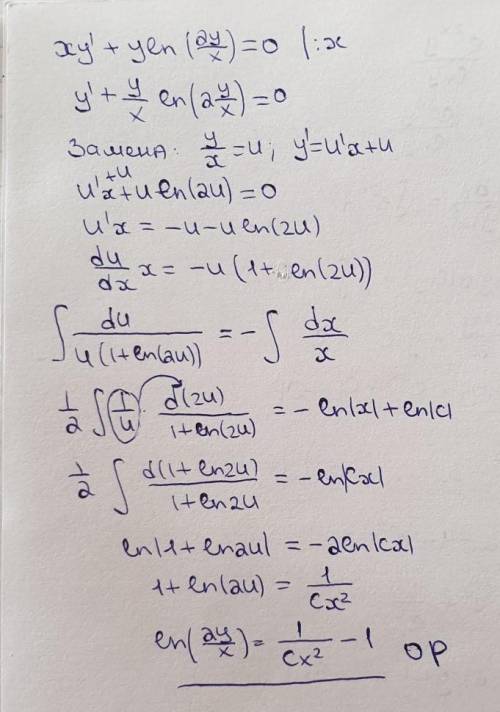 xy' + y ln(2y/x) = 0 | :x
y' + y/x ln(2 y/x) = 0
Замена: y/x = u; y' = u'x + u
u'x + u + u ln(2u) = 0
u'x = -u - u ln(2u)
du/dx x = -u (1 + ln(2u))
∫ du/(u(1+ln(2u))) = - ∫ dx/x
1/2 ∫ 1/u · d(2u)/(1+ln(2u)) = - ln|x| + ln|c|
1/2 ∫ d(1+ln2u)/(1+ln2u) = -ln|cx|
ln|1+ln2u| = -2ln|cx|
1 + ln(2u) = 1/(Cx²)
ln(2y/x) = 1/(Cx²) - 1 OP